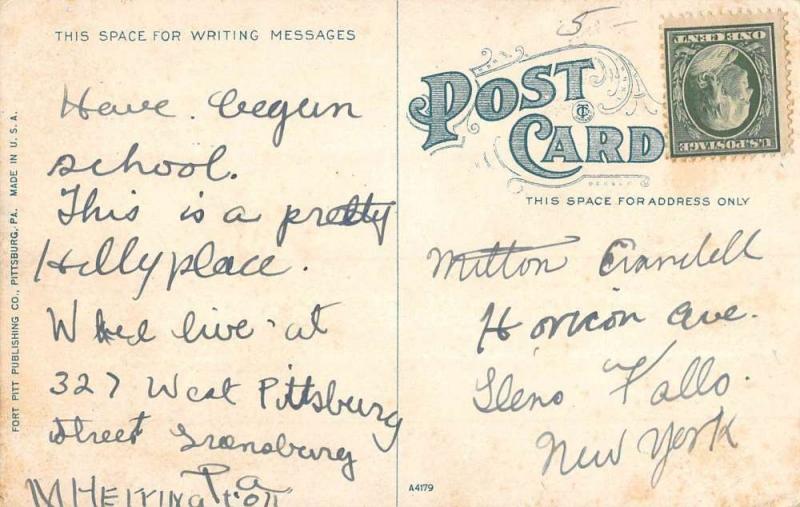 THIS SPACE FOR WRITING MESSAGES
Have begun
school.
This is a pretty
Hilly place.
live at
327 West Pittsburg
street Greensburg
Pa
M Hetrington
FORT PITT PUBLISHING CO., PITTSBURG, PA. MADE IN U.S.A.
5-
POST
CARD
THIS SPACE FOR ADDRESS ONLY
U.S. POSTAGE
ONE CENT
Milton Crandell
Horicon Ave.
Glens Falls.
New York
A4179